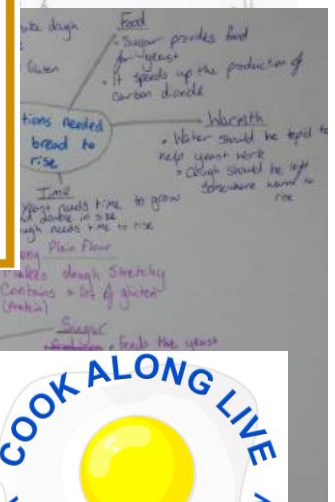 make dough
Gluten
Food
• Sugar provides food
for yeast
• It speeds up the production of
Carbon dioxide
tions needed
bread to
rise
Warmth
• Water should be tepid to
help yeast work
• Dough should be left
Somewhere warm to
rise
Time
Yeast needs time to grow
and double in size
ugh needs time to rise
ong Plain Flour
Makes dough Stretchy
Contains a lot of gluten
(Protein)
Sugar
• Feeds the yeast
COOK ALONG LIVE